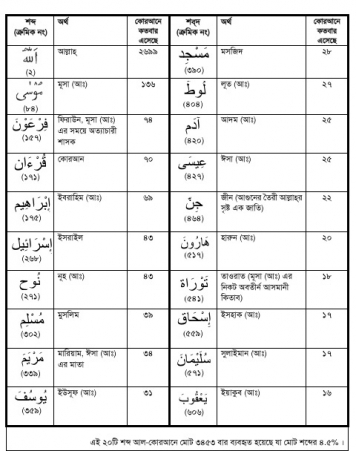 শব্দ (ক্রমিক নং) অর্থ কোরআনে কতবার এসেছে শব্দ (ক্রমিক নং) অর্থ কোরআনে কতবার এসেছে
اَللّٰه (২) আল্লাহ ২৬৯৯ مَسْجِد (৩৯০) মসজিদ ২৮
مُوسَى (৮৪) মূসা (আঃ) ১৩৬ لُوط (৪০৪) লূত (আঃ) ২৭
فِرْعَوْنَ (১৫৭) ফিরাউন, মূসা (আঃ) এর সময়ে অত্যাচারী শাসক ৭৪ آدَم (৪২০) আদম (আঃ) ২৫
قُرْءَان (১৭১) কোরআন ৭০ عِيسَى (৪২৭) ঈসা (আঃ) ২৫
إِبْرَاهِيم (১৭৫) ইবরাহিম (আঃ) ৬৯ جِنّ (৪৬৪) জীন (আগুনের তৈরী আল্লাহর সৃষ্ট এক জাতি) ২২
إِسْرَائِيل (২৬৮) ইসরাইল ৪৩ هَارُونَ (৫১৭) হারুন (আঃ) ২০
نُوح (২৭১) নূহ (আঃ) ৪৩ تَوْرَاة (৫৪১) তাওরাত (মূসা (আঃ) এর নিকট অবতীর্ন আসমানী কিতাব) ১৮
مُسْلِم (৩০২) মুসলিম ৩৯ إِسْحَاق (৫৫৯) ইসহাক (আঃ) ১৭
مَرْيَمَ (৩৩৯) মারিয়াম, ঈসা (আঃ) এর মাতা ৩৪ سُلَيْمَان (৫৭১) সুলাইমান (আঃ) ১৭
يُوسُفَ (৩৫৯) ইউসূফ (আঃ) ৩১ يَعْقُوبَ (৬০৬) ইয়াকুব (আঃ) ১৬
এই ২০টি শব্দ আল-কোরআনে মোট ৩৪৫৩ বার ব্যবহৃত হয়েছে যা মোট শব্দের ৪.৫% ।